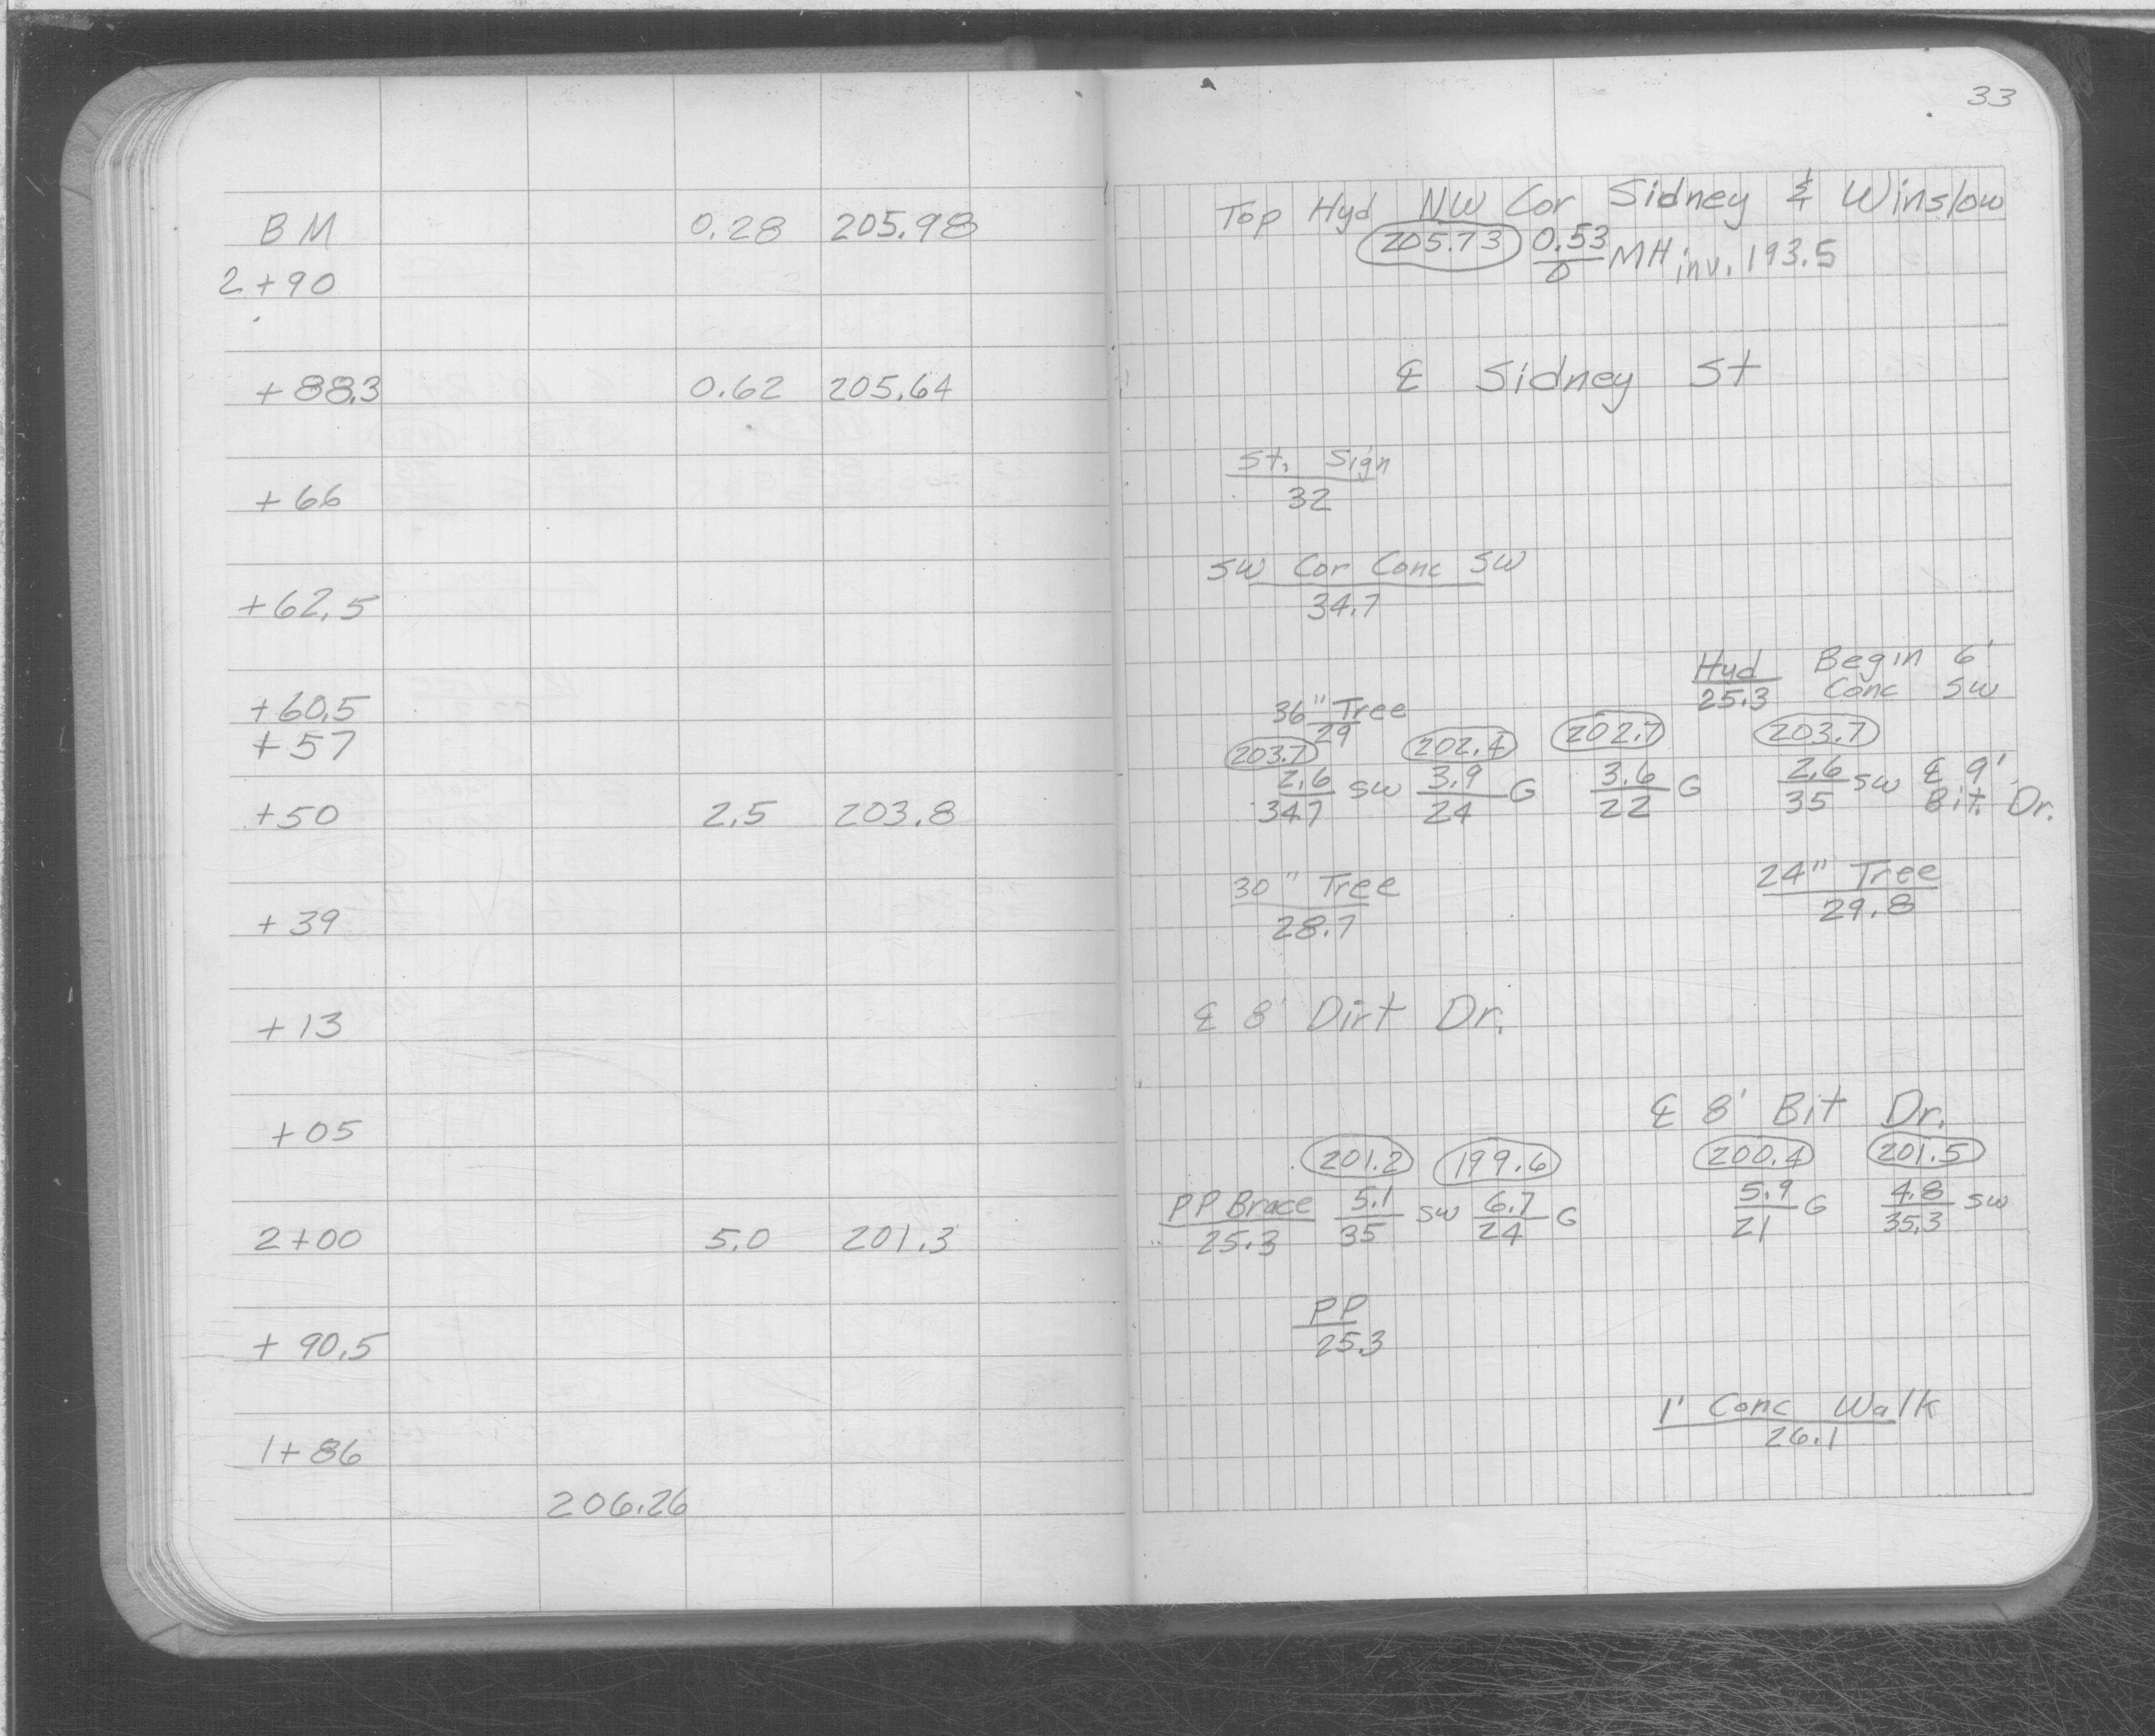 33
BM 0.28 205.98
2+90
+88.3 0.62 205.64
+66
+62.5
+60.5
+57
+50 2.5 203.8
+39
+13
+05
2+00 5.0 201.3
+90.5
1+86
206.26
Top Hyd NW Cor Sidney & Winslow
205.73 0.53 MH inv. 193.5
0
℄ Sidney St
St. Sign
32
SW Cor Conc SW
34.7
Hyd Begin 6'
25.3 Conc SW
36" Tree
29
203.7 202.4 202.7 203.7
2.6 SW 3.9 G 3.6 G 2.6 SW ℄ 9'
34.7 24 22 35 Bit. Dr.
30" Tree 24" Tree
28.7 29.8
℄ 8' Dirt Dr.
℄ 8' Bit Dr.
201.2 199.6 200.4 201.5
PP Brace 5.1 SW 6.7 G 5.9 G 4.8 SW
25.3 35 24 21 35.3
PP
25.3
1' Conc Walk
26.1